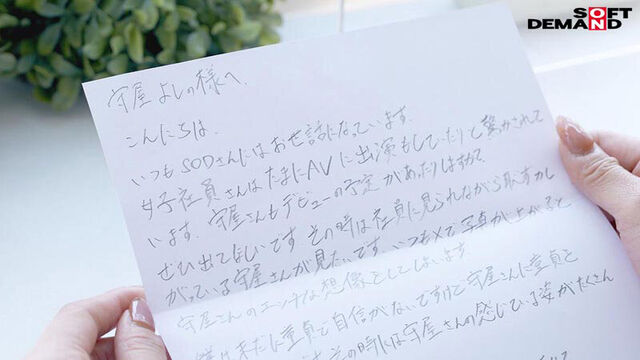 SOFT
DEMAND
守屋よしの様へ
こんにちは、
いつもSODさんにはお世話になっています。
女子社員さんはたまにAVに出演もしてたりと驚かされて
います。守屋さんもデビューの予定があたりはすかで
ぜひ出てほしいです。その時は社員に見られながら恥ずかし
がっている守屋さんが見たいです。いつもXで写真が上がると
守屋さんのエッチな想像をしてしまいます。
未だに童貞で自信がないですけど守屋さんに童貞を
その時には守屋さんの感じている姿がたくさん